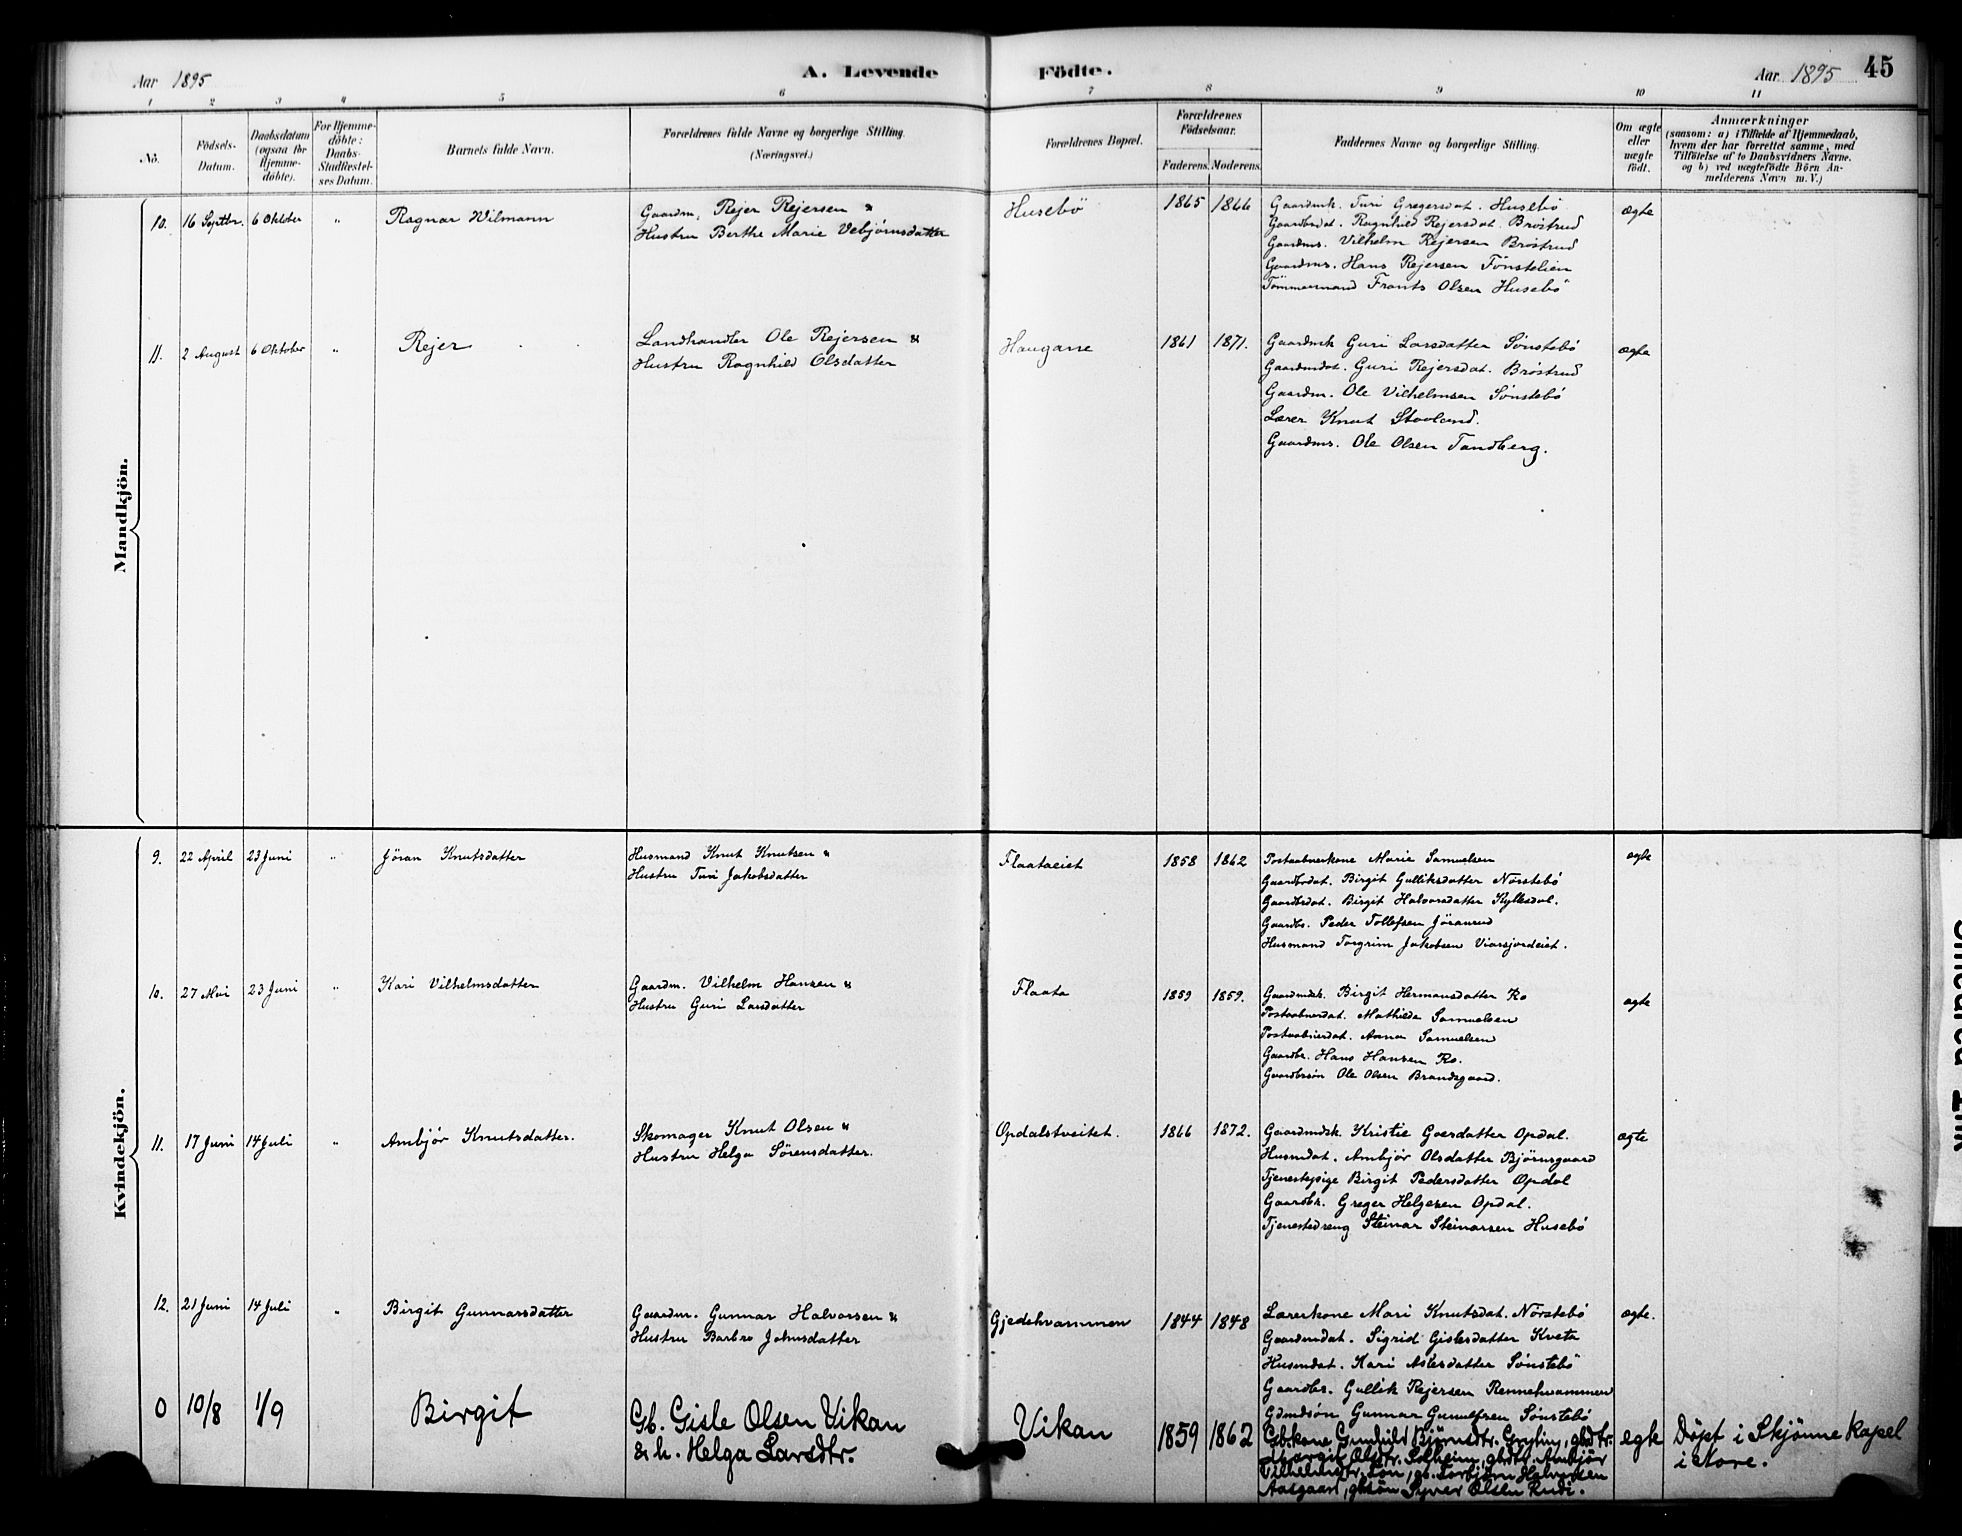 Aar 1895
A. Levende Födte.
Aar 1895 45
1 2 3 4 5 6 7 8 9 10 11
No.
Födsels-Datum.
Daabsdatum (ogsaa for Hjemmedöbte).
For Hjemmedöbte: Daabs-Stadfæstelses Datum.
Barnets fulde Navn.
Forældrenes fulde Navne og borgerlige Stilling.
(Næringsvei.)
Forældrenes Bopæl.
Forældrenes Födselsaar.
Faderens. Moderens.
Faddernes Navne og borgerlige Stilling.
Om ægte eller uægte födt.
Anmærkninger
(saasom: a) i Tilfælde af Hjemmedaab,
hvem der har forrettet samme, med
Tilföielse af to Daabsvidners Navne.
og b) ved uægtefödte Börn An-
melderens Navn m. V.)
Mandkjön.
10. 16 Septbr. 6 Oktober " Ragnar Wilmann
Gaardm. Rejer Rejersen &
Hustru Berthe Marie Vebjørnsdatter
Husebö 1865 1866
Gaardmk. Turi Gregersdat. Husebö
Gaardbrdat. Ragnhild Rejersdat. Bröstrud
Gaardms. Vilhelm Rejersen Bröstrud
Gaardms. Hans Rejersen Tönstelien
Tömmermand Frants Olsen Husebö
ægte
11. 2 August 6 Oktober " Rejer
Landhandler Ole Rejersen &
Hustru Ragnhild Olsdatter
Haugane 1861 1871.
Gaardmk Guri Larsdatter Sönstebö
Gaardmdat. Guri Rejersdat. Bröstrud
Gaardm. Ole Vilhelmsen Sönstebö
Lærer Knut Stavland.
Gaardms. Ole Olsen Tandberg.
ægte
Kvindekjön.
9. 22 April 23 Juni " Jöran Knutsdatter
Husmand Knut Knutsen &
Hustru Turi Jakobsdatter
Flaataeiet 1858 1862
Postaabnerkone Marie Samuelsen
Gaardbrdat. Birgit Gulliksdatter Nörstebö
Gaardbrdat. Birgit Halvorsdatter
Gaardbr. Peder Tollefsen Jöranrud
Husmand Torgrim Jakobsen
ægte
10. 27 Mai 23 Juni " Kari Vilhelmsdatter
Gaardm. Vilhelm Hansen &
Hustru Guri Larsdatter
Flaata 1859 1859.
Gaardmsk. Birgit Hermansdatter Ro
Postaabnerdat. Mathilde Samuelsen
Postaabnerdat. Anna Samuelsen
Gaardbr. Hans Hansen Ro.
Gaardbrsön Ole Olsen Brandsgaard.
ægte
11. 17 Juni 14 Juli " Ambjør Knutsdatter.
Skomager Knut Olsen &
Hustru Helga Sörensdatter.
Opdalstveitet. 1866 1872.
Gaardmdsk. Kristie Goesdatter Opdal.
Husmdat. Ambjør Olsdatter Bjørnsgaard
Tjenestepige Birgit Pedersdatter Opdal
Gaardbr. Greger Helgesen Opdal.
Tjenestedreng Steinar Steinarsen Husebö
ægte
12. 21 Juni 14 Juli " Birgit Gunnarsdatter
Gaardm. Gunnar Halvorsen &
Hustru Barbro Johnsdatter
Gjedehvammen 1844 1848
Lærerkone Mari Knutsdat. Nörstebö
Gaardmdat. Sigrid Gislesdatter Kveta
Husmdat. Kari Aslesdatter Sönstebö
Gaardbr. Gullik Rejersen Rennehvammen
Gdmdsön Gunnar Gunulfsen Sönstebö
ægte.
0 10/8 1/9 Birgit
Gb. Gisle Olsen Vikan
& h. Helga Larsdtr.
Vikan 1859 1862
Gbkone Gunhild Bjørnsdtr. gbdtr.
Margit Olsdtr. Solheim, gbdtr. Ambjör
Vilhelmsdtr. gb. Torbjörn Halvorsen
Aasgaard, gbsön Syver Olsen Rudi.
egte
Døpt i Skjønne Kapel
i Nore.